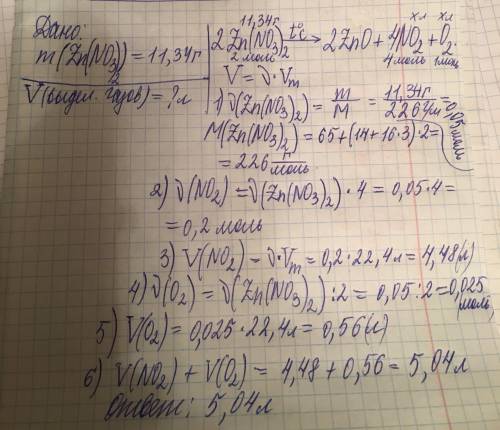 Дано:
m(Zn(NO₃)₂) = 11,34г
V(выдел. газов) = ? л
11,34г хл хл
2Zn(NO₃)₂ t°C→ 2ZnO + 4NO₂ + O₂
2 моль 4 моль 1 моль
V = ν · Vm
1) ν(Zn(NO₃)₂) = m/M = 11,34г/226г/м = 0,05 моль
M(Zn(NO₃)₂) = 65 + (14 + 16 · 3) · 2 =
= 226 г/моль
2) ν(NO₂) = ν(Zn(NO₃)₂) · 4 = 0,05 · 4 =
= 0,2 моль
3) V(NO₂) = ν · Vm = 0,2 · 22,4л = 4,48(л)
4) ν(O₂) = ν(Zn(NO₃)₂) : 2 = 0,05 : 2 = 0,025 моль
5) V(O₂) = 0,025 · 22,4л = 0,56(л)
6) V(NO₂) + V(O₂) = 4,48 + 0,56 = 5,04л
Ответ: 5,04л